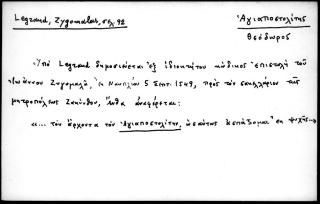 Legrand, Zygomalas, σελ. 92
Ἁγιαποστολίτης
Θεόδωρος
Ὑπὸ Legrand δημοσιεύεται ἐξ ἰδιοκτήτου κώδικος ἐπιστολὴ τοῦ
Ἰωάννου Ζυγομαλᾶ, ἐκ Ναυπλίου 5 Σεπτ. 1549, πρὸς τὸν σακελλάριον τῆς
μητροπόλεως Ζακύνθου, ἔνθα ἀναφέρεται:
«... τὸν ἄρχοντα τὸν Ἁγιαποστολίτην, ὡσαύτως ἀσπάζομαι ἐκ ψυχῆς...»